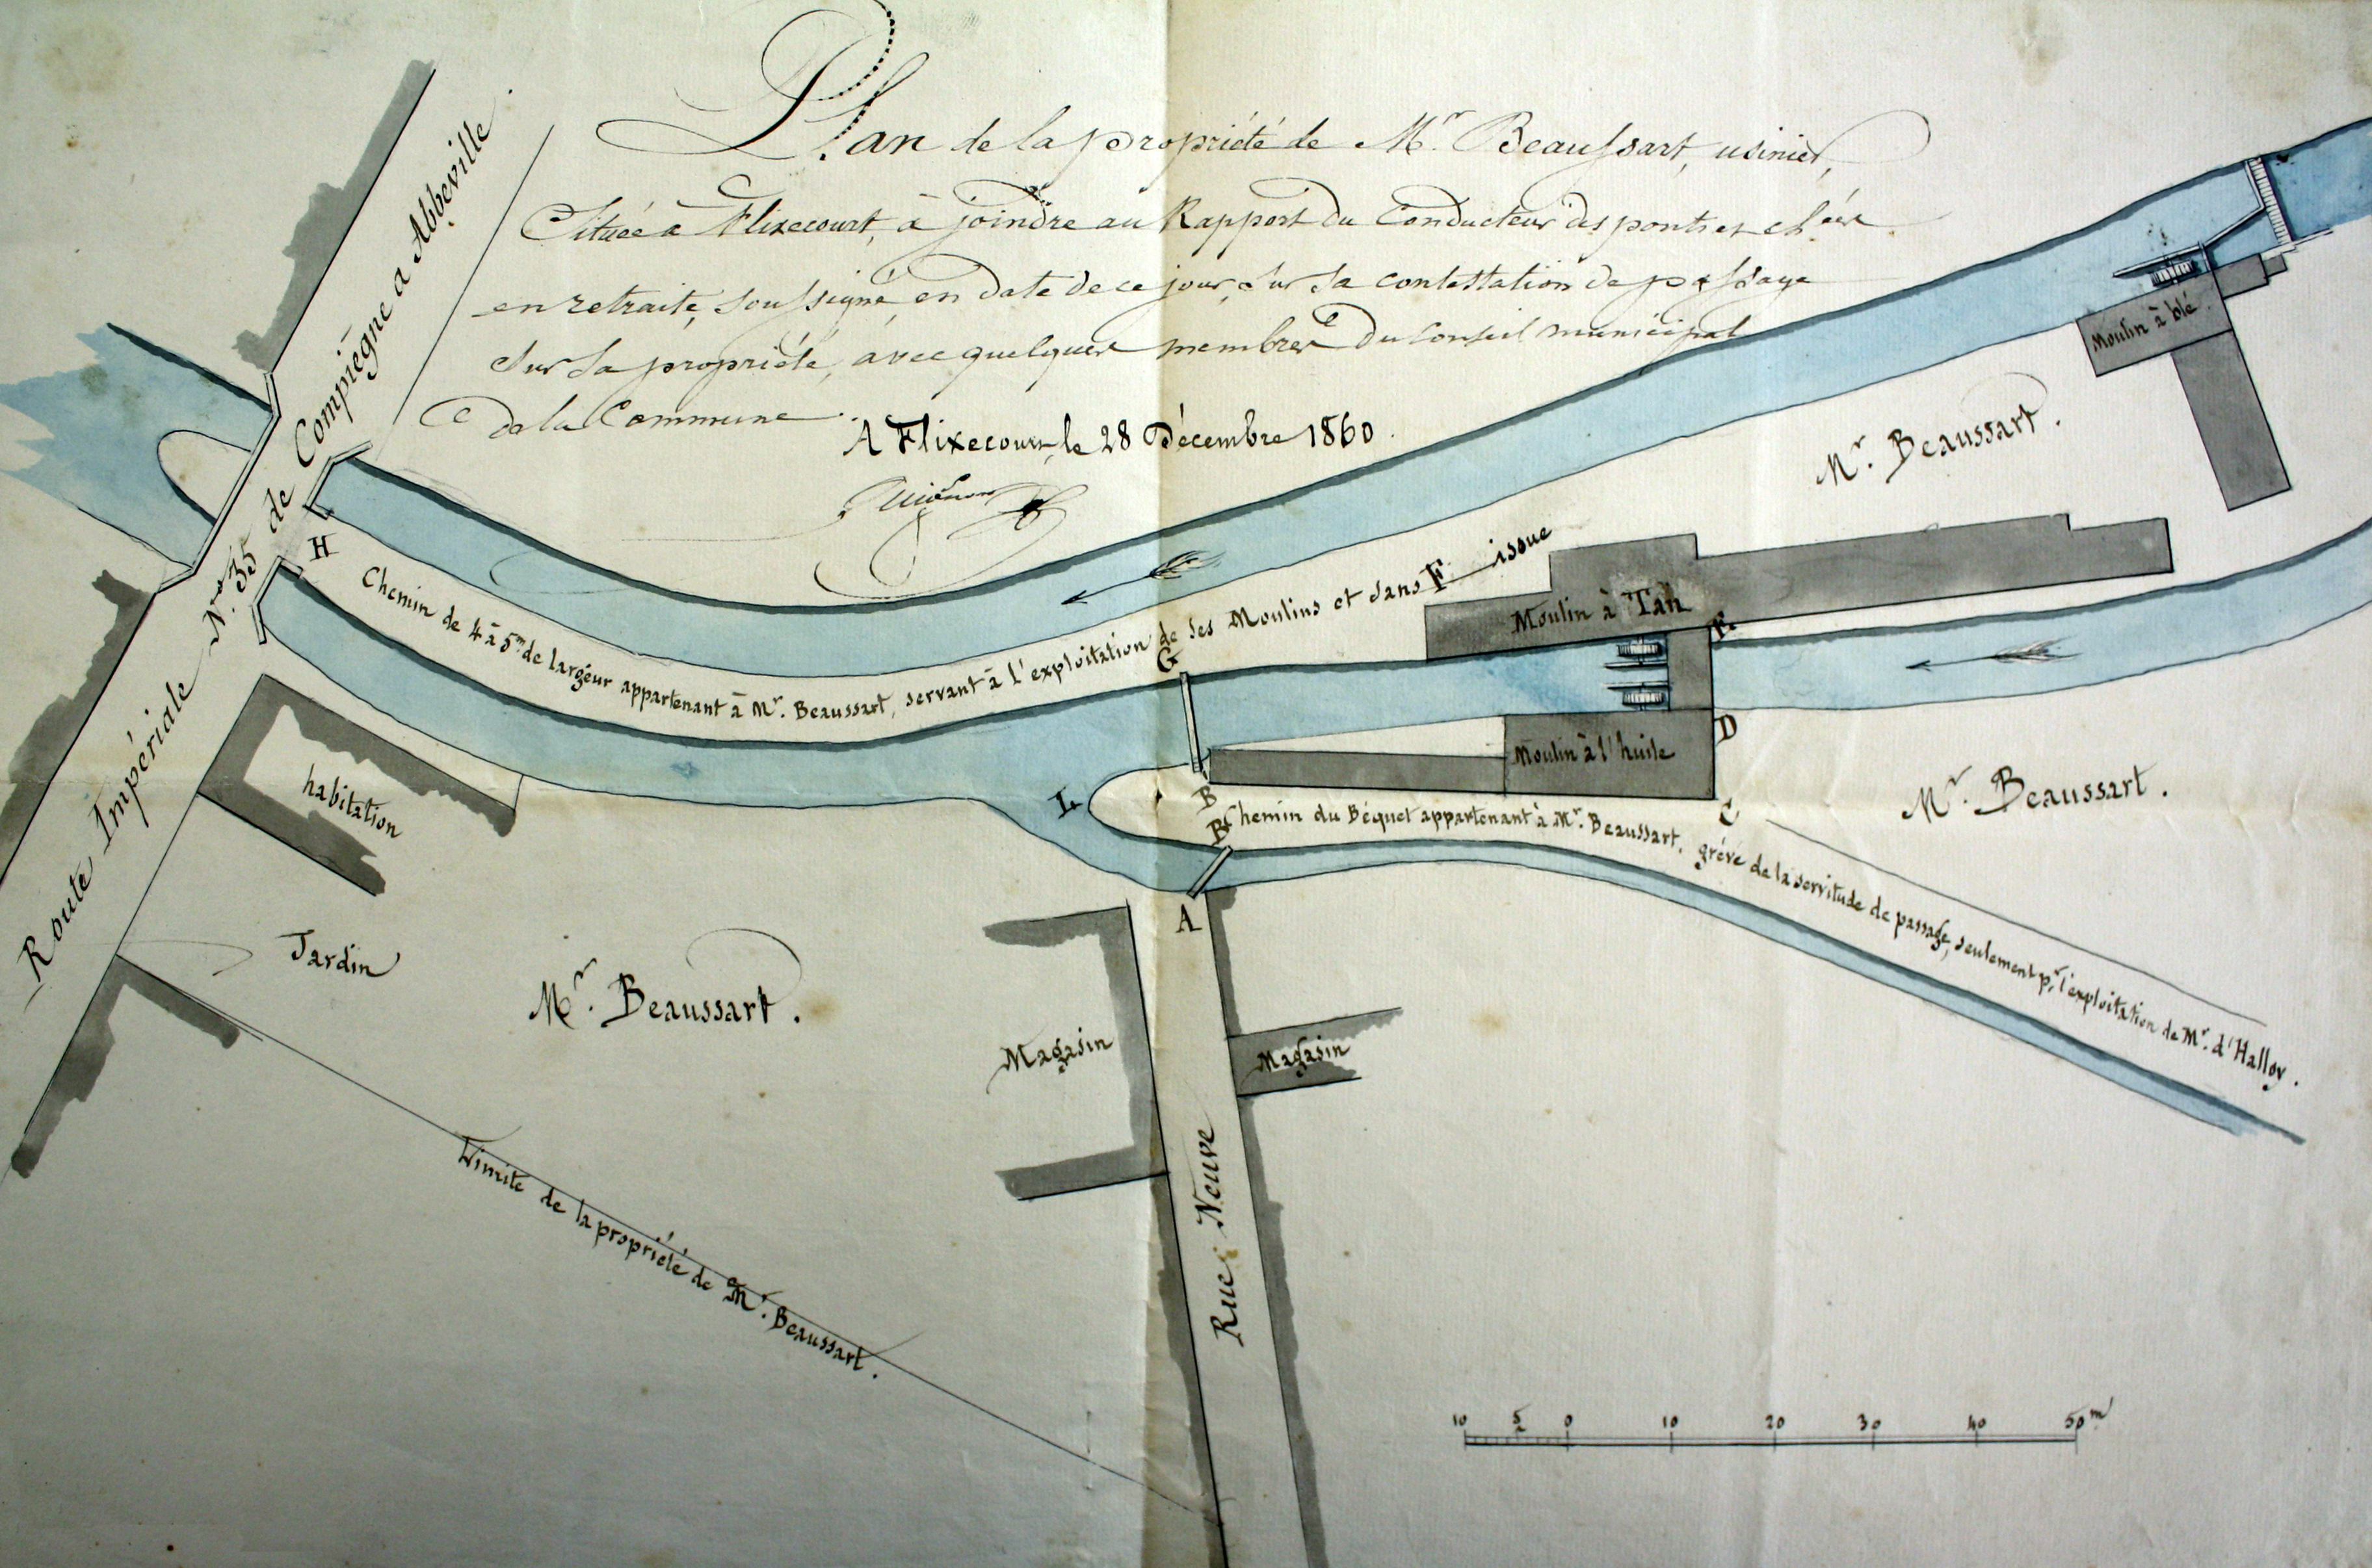 Plan de la propriété de Mr. Beaussart, usinier,
Située à Flixecourt, à joindre au Rapport du Conducteur des ponts et chées
en retraite, soussigné, en date de ce jour, sur la contestation de passage
sur sa propriété, avec quelques membres du Conseil municipal
de la Commune.
A Flixecourt, le 28 Décembre 1860.
Route Impériale No. 35 de Compiègne a Abbeville.
H
Chemin de 4 à 5m de largeur appartenant à Mr. Beaussart, servant à l'exploitation de ses Moulins et sans issue
F
G
Moulin à blé
Mr. Beaussart.
Moulin à Tan
E
D
Moulin à l'huile
C
Mr. Beaussart.
L
B
B
Chemin du Béquet appartenant à Mr. Beaussart, grévé de la servitude de passage, seulement pr. l'exploitation de Mr. d'Halloy.
A
habitation
Jardin
Mr. Beaussart.
Magasin
Magasin
Rue Neuve
Limite de la propriété de Mr. Beaussart.
10 5 0 10 20 30 40 50m